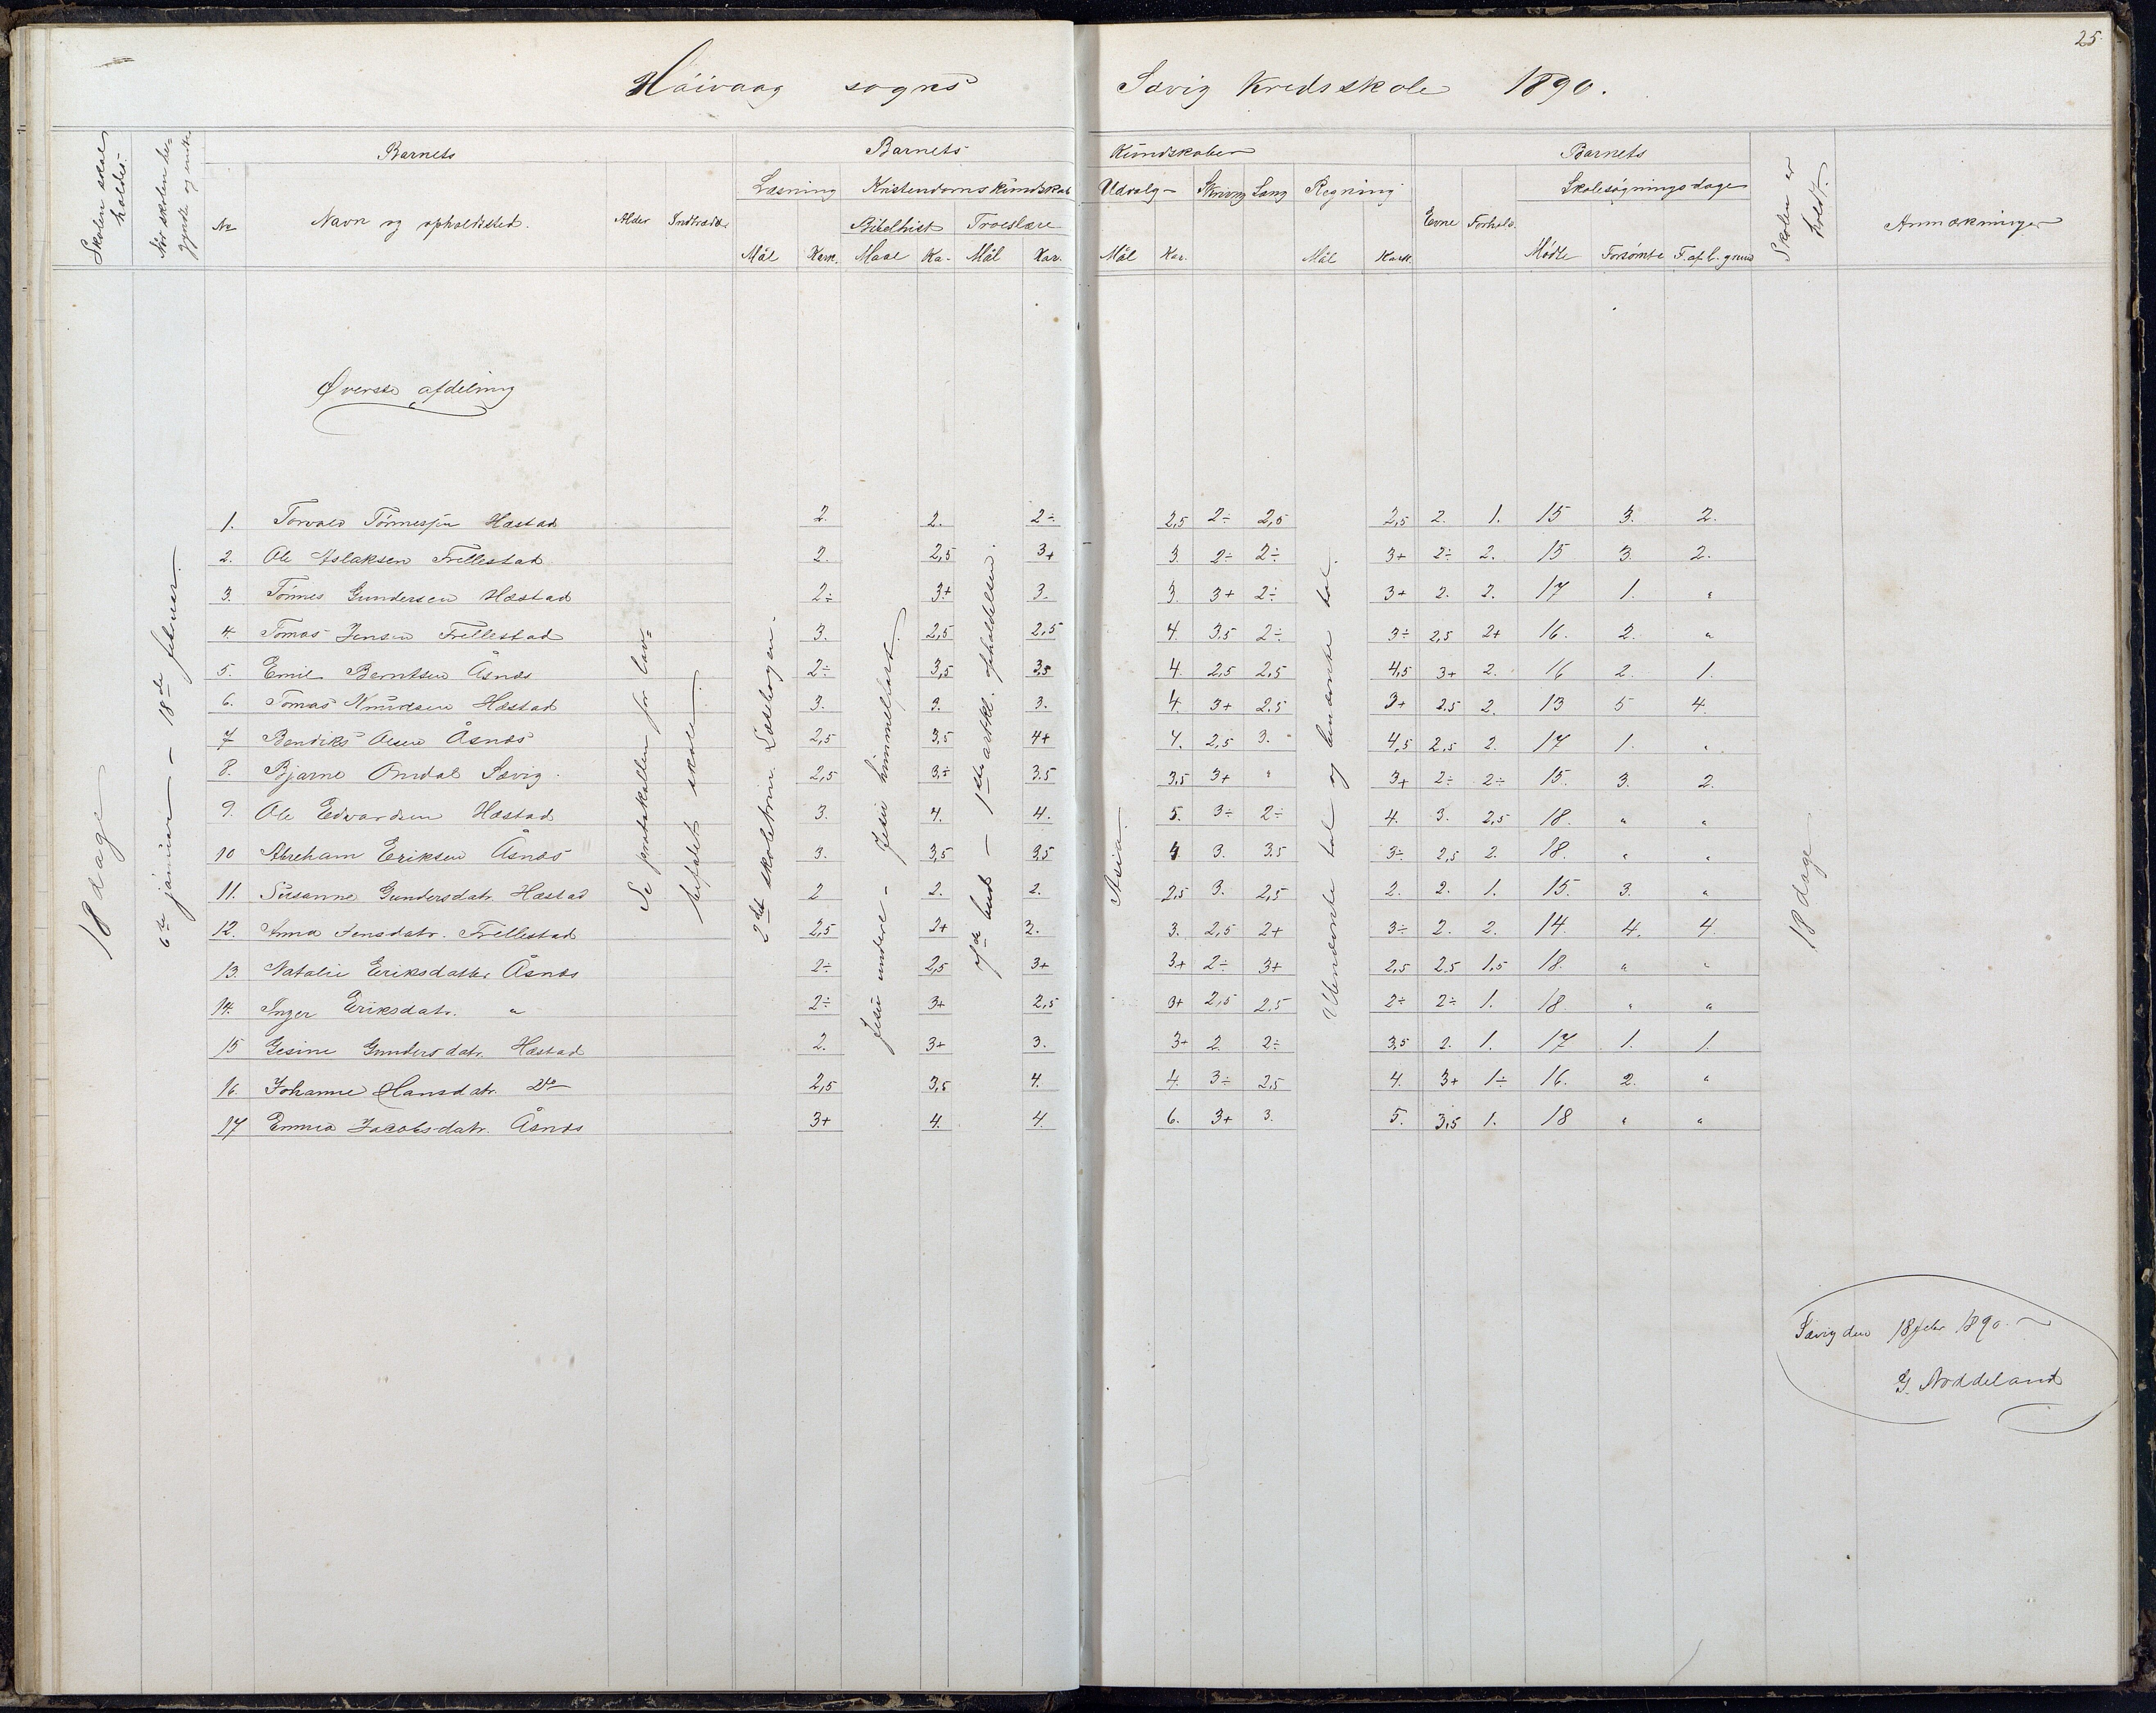 25.
Höivaag sogns Sævig Kredsskole 1890.
Skolen skal holdes.
Når skolen begyndte og endte
Barnets
No Navn og opholdssted. Alder Indtrædde
Barnets Kundskaber
Læsning Kristendomskundskab Udvalg Skrivng Sang Regning
Bibelhist Troeslære
Mål Kark. Maal Ka. Mål Kar. Mål Kar. Mål Kark.
Barnets
Evne Forhold. Skolesøgningsdage
Mødte Forsømte F. af l. grund
Skolen er holdt.
Anmærkninger
Øverste afdeling
18 dage
6te januar – 18de februar.
Se protokollen for lav=
befalet skole.
2det skoletrin Læsebogen.
Jesu undere – Jesu himmelfart.
af de bud – 1ste artkl. opholdelsen.
Asia.
Ubenævnte tal og benævnte tal.
18 dage
1. Torvald Tönnesen Hæstad 2. 2. 2÷ 2,5 2÷ 2,5 2,5 2. 1. 15 3. 2.
2. Ole Aslaksen Trellestad 2. 2,5 3+ 3. 2÷ 2÷ 3+ 2÷ 2. 15 3. 2.
3. Tönnes Gundersen Hæstad 2÷ 3+ 3. 3. 3+ 2÷ 3+ 2. 2. 17 1. "
4. Tomas Jensen Trellestad 3. 2,5 2,5 4. 3,5 2÷ 3÷ 2,5 2+ 16. 2. "
5. Emil Berntsen Åsnæs 2÷ 3,5 3,5 4. 2,5 2,5 4,5 3+ 2. 16 2. 1.
6. Tomas Knudsen Hæstad 3. 3. 3. 4. 3+ 2.5 3+ 2.5 2. 13 5 4.
7 Bendiks Olsen Åsnæs 2,5 3,5 4+ 4. 2,5 3. 4,5 2,5 2. 17 1. "
8. Bjarne Omdal Sævig. 2,5 3÷ 3.5 3,5 3+ " 3+ 2÷ 2÷ 15. 3. 2.
9. Ole Edvardsen Hæstad 3. 4. 4. 5. 3÷ 2÷ 4. 3. 2,5 18. " "
10 Abreham Eriksen Åsnæs 3. 3,5 3,5 4. 3. 3.5 3÷ 2,5 2. 18. " "
11. Susanne Gundersdatr. Hæstad 2 2. 2. 2,5 3. 2,5 2. 2. 1. 15. 3. "
12. Anna Jensdatr. Trellestad 2,5 2+ 3. 3. 2,5 2+ 3÷ 2. 2. 14. 4. 4
13. Natalie Eriksdatter Åsnæs 2÷ 2,5 3+ 3+ 2÷ 3+ 2,5 2.5 1,5 18. " "
14. Inger Eriksdatr. " 2÷ 3+ 2,5 3+ 2,5 2,5 2÷ 2÷ 1. 18. " "
15 Gesine Gundersdatr. Hæstad 2. 3+ 3. 3+ 2. 2÷ 3,5 2. 1. 17 1. 1.
16. Johanne Hansdatr. Dto 2,5 3,5 4. 4. 3÷ 2,5 4. 3+ 1÷ 16. 2. "
17 Emma Jacobsdatr. Åsnæs 3+ 4. 4. 6. 3+ 3. 5. 3,5 1. 18 " "
Sævig den 18 febr 1890.
G. Noddeland